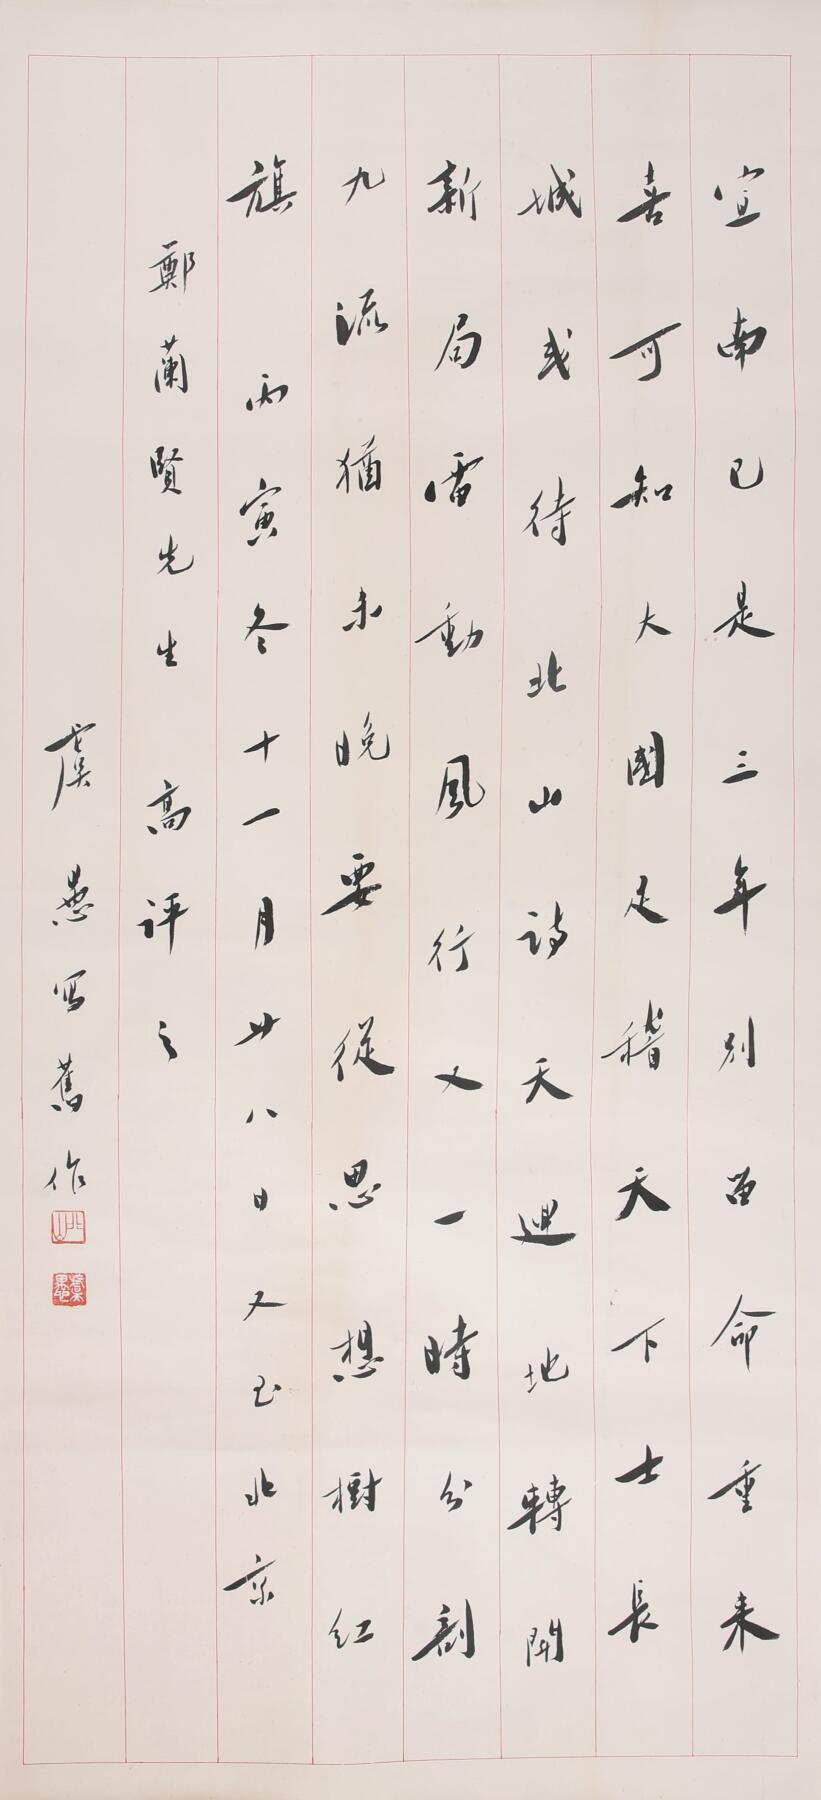 宣南已是三年別留命重来
喜可知大國足稽天下士長
城或待北山詩天迴地轉開
新局雷動風行又一時分剖
九流猶未晚要從思想樹紅
旗 丙寅冬十一月廿八日又至北京
鄭蘭賢先生 高評之
虞愚寫舊作